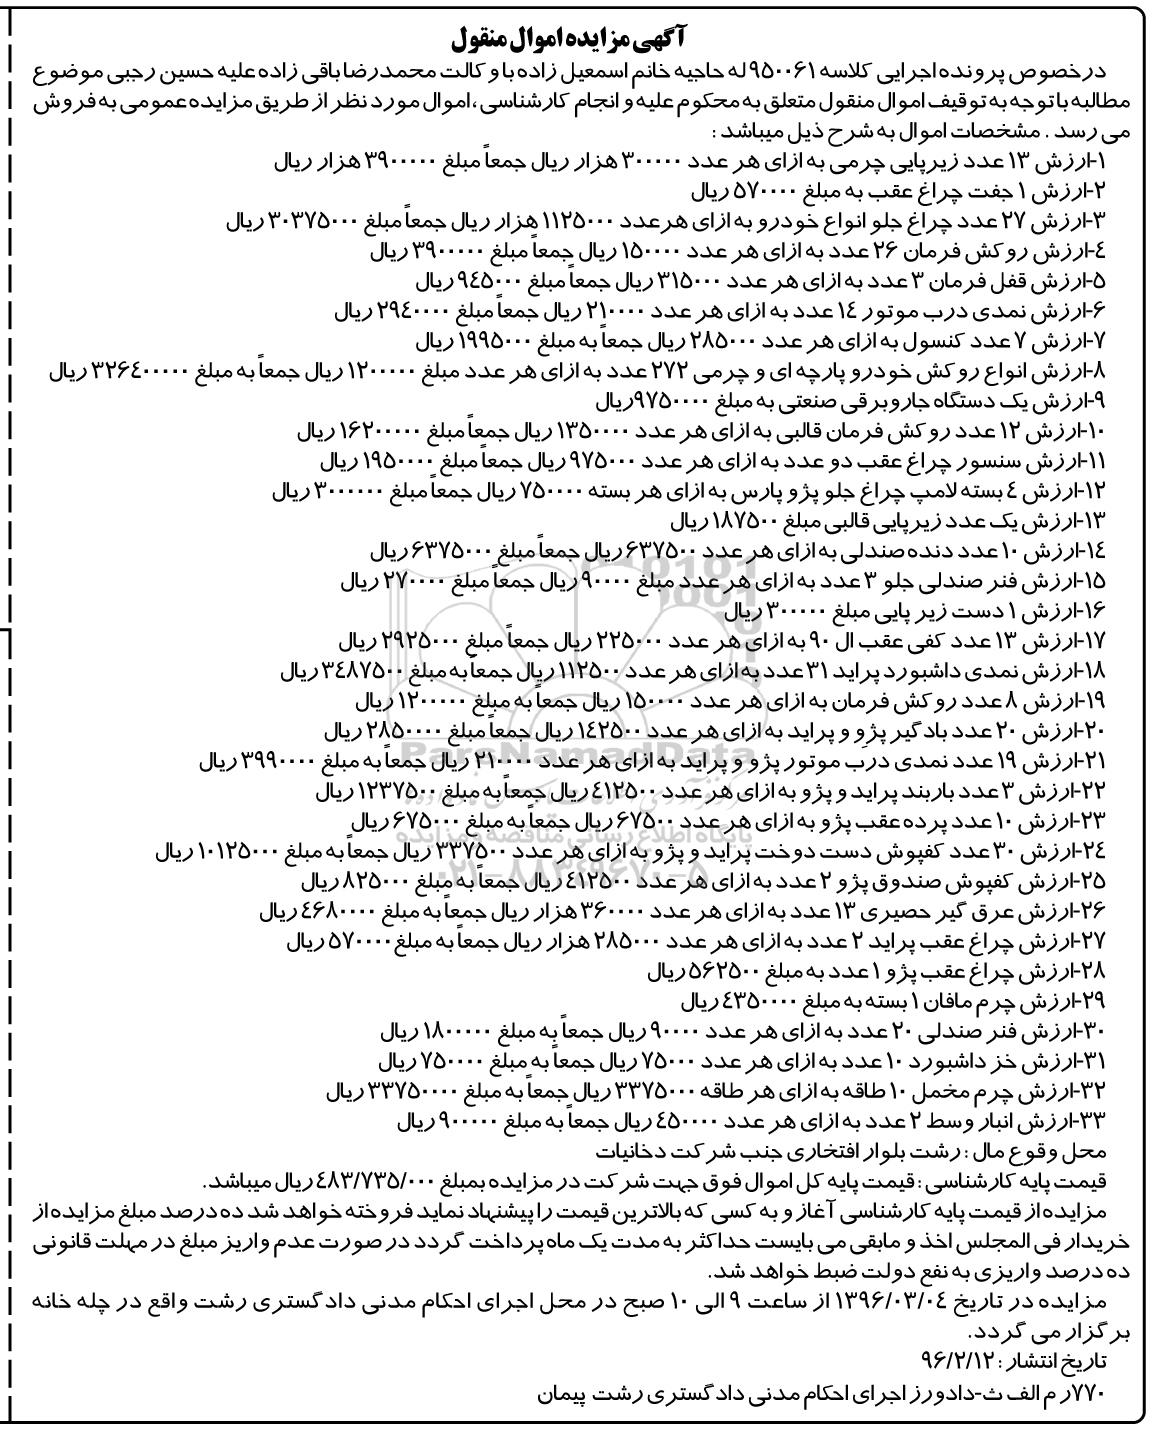 آگهی مزایده اموال منقول
درخصوص پرونده اجرایی کلاسه ۹۵۰۰۶۱ له حاجیه خانم اسمعیل زاده با وکالت محمدرضا باقی زاده علیه حسین رجبی موضوع
مطالبه با توجه به توقیف اموال منقول متعلق به محکوم علیه و انجام کارشناسی ، اموال مورد نظر از طریق مزایده عمومی به فروش
می رسد . مشخصات اموال به شرح ذیل میباشد :
۱-ارزش ۱۳ عدد زیرپایی چرمی به ازای هر عدد ۳۰۰۰۰۰ هزار ریال جمعاً مبلغ ۳۹۰۰۰۰۰ هزار ریال
۲-ارزش ۱ جفت چراغ عقب به مبلغ ۵۷۰۰۰۰ ریال
۳-ارزش ۲۷ عدد چراغ جلو انواع خودرو به ازای هرعدد ۱۱۲۵۰۰۰ هزار ریال جمعاً مبلغ ۳۰۳۷۵۰۰۰ ریال
۴-ارزش روکش فرمان ۲۶ عدد به ازای هر عدد ۱۵۰۰۰۰ ریال جمعاً مبلغ ۳۹۰۰۰۰۰ ریال
۵-ارزش قفل فرمان ۳ عدد به ازای هر عدد ۳۱۵۰۰۰ ریال جمعاً مبلغ ۹۴۵۰۰۰ ریال
۶-ارزش نمدی درب موتور ۱۴ عدد به ازای هر عدد ۲۱۰۰۰۰ ریال جمعاً مبلغ ۲۹۴۰۰۰۰ ریال
۷-ارزش ۷ عدد کنسول به ازای هر عدد ۲۸۵۰۰۰ ریال جمعاً به مبلغ ۱۹۹۵۰۰۰ ریال
۸-ارزش انواع روکش خودرو پارچه ای و چرمی ۲۷۲ عدد به ازای هر عدد مبلغ ۱۲۰۰۰۰۰ ریال جمعاً به مبلغ ۳۲۶۴۰۰۰۰۰ ریال
۹-ارزش یک دستگاه جاروبرقی صنعتی به مبلغ ۹۷۵۰۰۰۰ریال
۱۰-ارزش ۱۲ عدد روکش فرمان قالبی به ازای هر عدد ۱۳۵۰۰۰۰ ریال جمعاً مبلغ ۱۶۲۰۰۰۰۰ ریال
۱۱-ارزش سنسور چراغ عقب دو عدد به ازای هر عدد ۹۷۵۰۰۰ ریال جمعاً مبلغ ۱۹۵۰۰۰۰ ریال
۱۲-ارزش ۴ بسته لامپ چراغ جلو پژو پارس به ازای هر بسته ۷۵۰۰۰۰ ریال جمعاً مبلغ ۳۰۰۰۰۰۰ ریال
۱۳-ارزش یک عدد زیرپایی قالبی مبلغ ۱۸۷۵۰۰ ریال
۱۴-ارزش ۱۰ عدد دنده صندلی به ازای هر عدد ۶۳۷۵۰۰ ریال جمعاً مبلغ ۶۳۷۵۰۰۰ ریال
۱۵-ارزش فنر صندلی جلو ۳ عدد به ازای هر عدد مبلغ ۹۰۰۰۰ ریال جمعاً مبلغ ۲۷۰۰۰۰ ریال
۱۶-ارزش ۱ دست زیر پایی مبلغ ۳۰۰۰۰۰ ریال
۱۷-ارزش ۱۳ عدد کفی عقب ال ۹۰ به ازای هر عدد ۲۲۵۰۰۰ ریال جمعاً مبلغ ۲۹۲۵۰۰۰ ریال
۱۸-ارزش نمدی داشبورد پراید ۳۱ عدد به ازای هر عدد ۱۱۲۵۰۰ ریال جمعاً به مبلغ ۳۴۸۷۵۰۰ ریال
۱۹-ارزش ۸ عدد روکش فرمان به ازای هر عدد ۱۵۰۰۰۰ ریال جمعاً به مبلغ ۱۲۰۰۰۰۰ ریال
۲۰-ارزش ۲۰ عدد بادگیر پژو و پراید به ازای هر عدد ۱۴۲۵۰۰ ریال جمعاً مبلغ ۲۸۵۰۰۰۰ ریال
۲۱-ارزش ۱۹ عدد نمدی درب موتور پژو و پراید به ازای هر عدد ۲۱۰۰۰۰ ریال جمعاً به مبلغ ۳۹۹۰۰۰۰ ریال
۲۲-ارزش ۳ عدد باربند پراید و پژو به ازای هر عدد ۴۱۲۵۰۰ ریال جمعاً به مبلغ ۱۲۳۷۵۰۰ ریال
۲۳-ارزش ۱۰ عدد پرده عقب پژو به ازای هر عدد ۶۷۵۰۰ ریال جمعاً به مبلغ ۶۷۵۰۰۰ ریال
۲۴-ارزش ۳۰ عدد کفپوش دست دوخت پراید و پژو به ازای هر عدد ۳۳۷۵۰۰ ریال جمعاً به مبلغ ۱۰۱۲۵۰۰۰ ریال
۲۵-ارزش کفپوش صندوق پژو ۲ عدد به ازای هر عدد ۴۱۲۵۰۰ ریال جمعاً به مبلغ ۸۲۵۰۰۰ ریال
۲۶-ارزش عرق گیر حصیری ۱۳ عدد به ازای هر عدد ۳۶۰۰۰۰ هزار ریال جمعاً به مبلغ ۴۶۸۰۰۰۰ ریال
۲۷-ارزش چراغ عقب پراید ۲ عدد به ازای هر عدد ۲۸۵۰۰۰ هزار ریال جمعاً به مبلغ ۵۷۰۰۰۰ ریال
۲۸-ارزش چراغ عقب پژو ۱ عدد به مبلغ ۵۶۲۵۰۰ ریال
۲۹-ارزش چرم مافان ۱ بسته به مبلغ ۴۳۵۰۰۰۰ ریال
۳۰-ارزش فنر صندلی ۲۰ عدد به ازای هر عدد ۹۰۰۰۰ ریال جمعاً به مبلغ ۱۸۰۰۰۰۰ ریال
۳۱-ارزش خز داشبورد ۱۰ عدد به ازای هر عدد ۷۵۰۰۰ ریال جمعاً به مبلغ ۷۵۰۰۰۰ ریال
۳۲-ارزش چرم مخمل ۱۰ طاقه به ازای هر طاقه ۳۳۷۵۰۰۰ ریال جمعاً به مبلغ ۳۳۷۵۰۰۰۰ ریال
۳۳-ارزش انبار وسط ۲ عدد به ازای هر عدد ۴۵۰۰۰۰ ریال جمعاً به مبلغ ۹۰۰۰۰۰ ریال
محل وقوع مال : رشت بلوار افتخاری جنب شرکت دخانیات
قیمت پایه کارشناسی : قیمت پایه کل اموال فوق جهت شرکت در مزایده بمبلغ ۴۸۳/۷۳۵/۰۰۰ ریال میباشد.
مزایده از قیمت پایه کارشناسی آغاز و به کسی که بالاترین قیمت را پیشنهاد نماید فروخته خواهد شد ده درصد مبلغ مزایده از
خریدار فی المجلس اخذ و مابقی می بایست حداکثر به مدت یک ماه پرداخت گردد در صورت عدم واریز مبلغ در مهلت قانونی
ده درصد واریزی به نفع دولت ضبط خواهد شد.
مزایده در تاریخ ۱۳۹۶/۰۳/۰۴ از ساعت ۹ الی ۱۰ صبح در محل اجرای احکام مدنی دادگستری رشت واقع در چله خانه
برگزار می گردد.
تاریخ انتشار : ۹۶/۲/۱۲
۷۷۰ر م الف ث-دادورز اجرای احکام مدنی دادگستری رشت پیمان
ParsNamadData
پایگاه اطلاع رسانی مناقصه و مزایده
۰۲۱-۸۸۳۴۹۶۷۰-۵